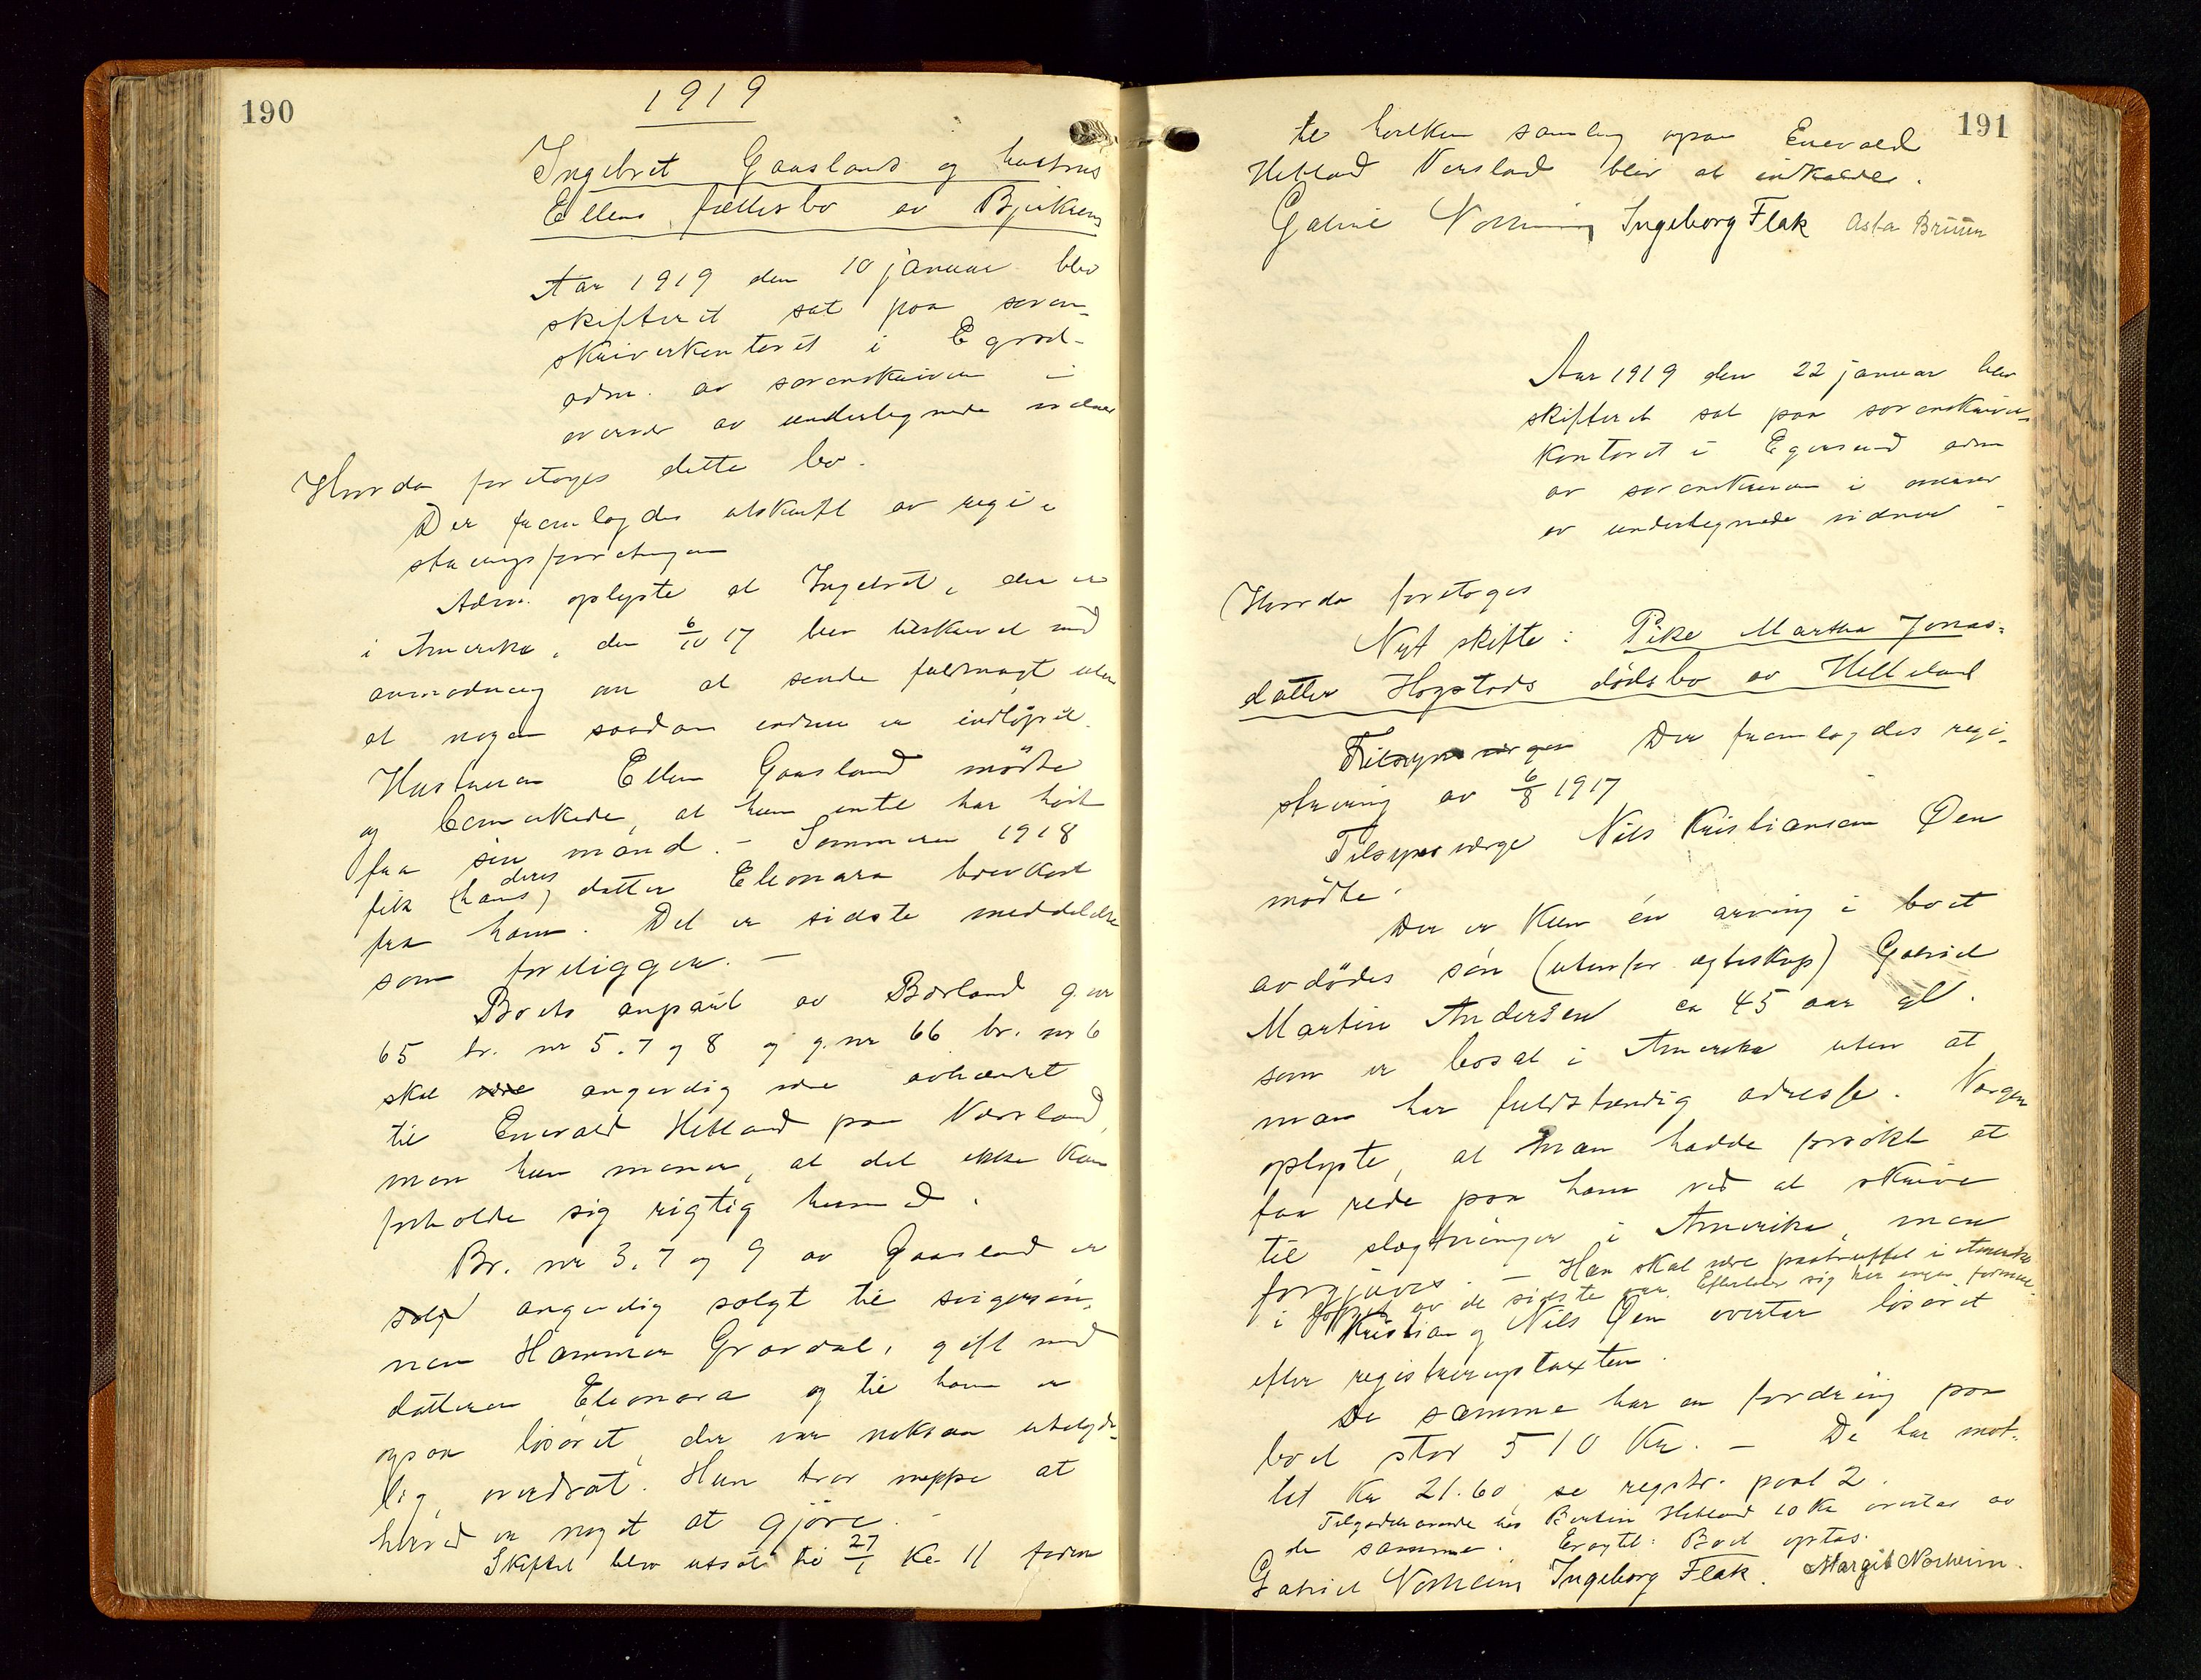 190
1919
Ingebret Gaaslands og hustrus
Ellens fællesbo av Bjerkrem
Aar 1919 den 10 januar blev
skifteret sat paa soren-
skriverkontoret i Egersd-
adm. av sorenskriveren i
overvær av undertegnede vidner
Hvorda foretoges dette bo.
Der fremlagdes utskrift av regi-
streringsforretningen
Adm. oplyste at Ingebret, der er
i Amerika, den 6/10 17 blev tilskrevet med
anmodning om at sende fuldmagt uten
at nogen saadan endnu er indløpet.
Hustruen Ellen Gaasland mødte
og bemerkede, at hun intet har hørt
fra sin mand. - Sommeren 1918
fik (hans) deres datter Eleonara brevkort
fra ham. Det er sidste meddelelse
som foreligger. -
Boets anpart av Børland g.nr
65 br. nr 5. 7 og 8 og g.nr 66 br. nr 6
skal angivelig være avhændet
til Enevald Hetland paa Versland,
men hun mener, at det ikke kan
forholde sig rigtig hermed.
Br. nr 3. 7 og 9 av Gaasland er
angivelig solgt til svigersøn-
nen Hammer Gravdal, gift med
datteren Eleonora og til ham er
ogsaa løsøret, der var noksaa ubetyde-
lig, overdrat. Hun tror neppe at
herved er noget at gjøre. -
Skiftet blev utsat til 27/1 Kl 11 form
191
til hvilken samling ogsaa Enevald
Hetland Versland blir at indkalde.
Gabriel Norheim Ingeborg Flak Asta Brüün
Aar 1919 den 22 januar blev
skifteret sat paa sorenskriver-
kontoret i Egersund adm
av sorenskriveren i overvær
av undertegnede vidner -
Hvorda foretoges
Nyt skifte: Pike Martha Jonas-
datter Hogstads dødsbo av Helleland
Der fremlagdes regi-
strering av 6/8 1917
Tilsynsverge Nils Kristiansen Øen
mødte.
Der er kun én arving i boet
avdødes søn (utenfor egteskap) Gabriel
Martin Andersen ca 45 aar gl.
som er bosat i Amerika uten at
man har fuldstændig adresse. Vergen
oplyste, at man hadde forsøkt at
faa rede paa ham ved at skrive
til slegtninger i Amerika, men
forgjæves. - Han skal være paatruffet i Amerika
i løpet av de sidste aar. Efterlater sig her ingen formue.
Kristian og Nils Øen overtar løsøret
efter registreringstaxten.
De samme har en fordring paa
boet stor 510 Kr. - De har mot-
tat Kr 21.60, se registr. post 2.
Tilgodehavende hos Bertin Hetland 10 Kr overtas av
de samme. Eragtet: Boet optas.
Gabriel Norheim Ingeborg Flak. Margit Norheim.